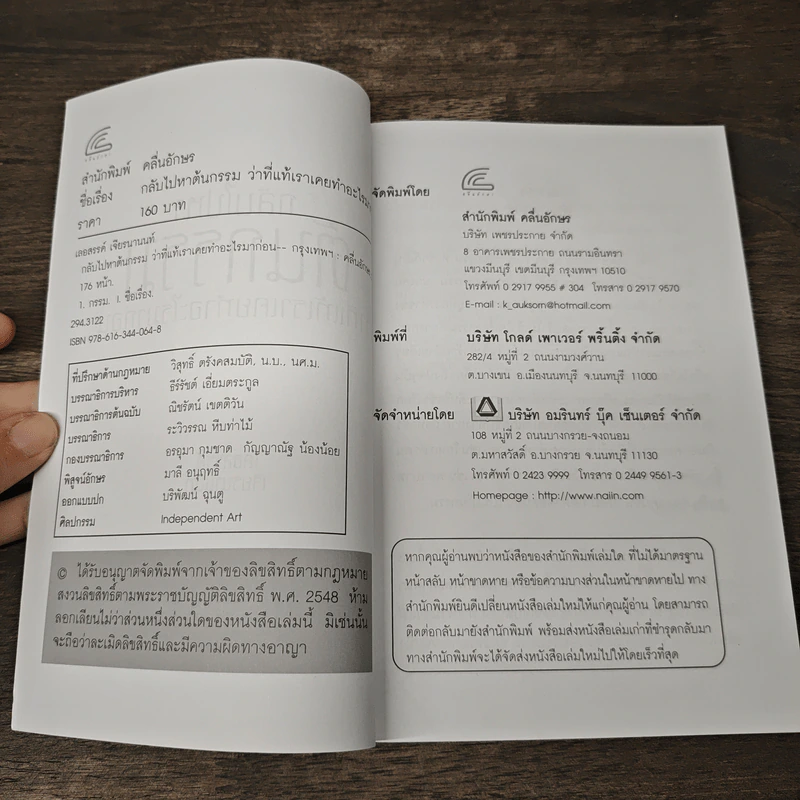 คลื่นอักษร
สำนักพิมพ์ คลื่นอักษร
ชื่อเรื่อง กลับไปหาต้นกรรม ว่าที่แท้เราเคยทำอะไรมา
ราคา 160 บาท
เลอสรรค์ เจียรนานนท์
กลับไปหาต้นกรรม ว่าที่แท้เราเคยทำอะไรมาก่อน-- กรุงเทพฯ : คลื่นอักษร
176 หน้า.
1. กรรม. I. ชื่อเรื่อง.
294.3122
ISBN 978-616-344-064-8
ที่ปรึกษาด้านกฎหมาย วิสุทธิ์ ตรังคสมบัติ, น.บ., นศ.ม.
บรรณาธิการบริหาร ธีร์รัชต์ เอี่ยมตระกูล
บรรณาธิการต้นฉบับ ณิชรัตน์ เขตติวัน
บรรณาธิการ ระวิวรรณ หีบท่าไม้
กองบรรณาธิการ อรอุมา กุมชาด กัญญาณัฐ น้องน้อย
พิสูจน์อักษร มาลี อนุฤทธิ์
ออกแบบปก บริพัฒน์ ฉุนตู
ศิลปกรรม Independent Art
© ได้รับอนุญาตจัดพิมพ์จากเจ้าของลิขสิทธิ์ตามกฎหมาย
สงวนลิขสิทธิ์ตามพระราชบัญญัติลิขสิทธิ์ พ.ศ. 2548 ห้าม
ลอกเลียนไม่ว่าส่วนหนึ่งส่วนใดของหนังสือเล่มนี้ มิเช่นนั้น
จะถือว่าละเมิดลิขสิทธิ์และมีความผิดทางอาญา
จัดพิมพ์โดย
คลื่นอักษร
สำนักพิมพ์ คลื่นอักษร
บริษัท เพชรประกาย จำกัด
8 อาคารเพชรประกาย ถนนรามอินทรา
แขวงมีนบุรี เขตมีนบุรี กรุงเทพฯ 10510
โทรศัพท์ 0 2917 9955 # 304 โทรสาร 0 2917 9570
E-mail : k_auksorn@hotmail.com
พิมพ์ที่ บริษัท โกลด์ เพาเวอร์ พริ้นติ้ง จำกัด
282/4 หมู่ที่ 2 ถนนงามวงศ์วาน
ต.บางเขน อ.เมืองนนทบุรี จ.นนทบุรี 11000
จัดจำหน่ายโดย บริษัท อมรินทร์ บุ๊ค เซ็นเตอร์ จำกัด
108 หมู่ที่ 2 ถนนบางกรวย-จงถนอม
ต.มหาสวัสดิ์ อ.บางกรวย จ.นนทบุรี 11130
โทรศัพท์ 0 2423 9999 โทรสาร 0 2449 9561-3
Homepage : http://www.naiin.com
หากคุณผู้อ่านพบว่าหนังสือของสำนักพิมพ์เล่มใด ที่ไม่ได้มาตรฐาน
หน้าสลับ หน้าขาดหาย หรือข้อความบางส่วนในหน้าขาดหายไป ทาง
สำนักพิมพ์ยินดีเปลี่ยนหนังสือเล่มใหม่ให้แก่คุณผู้อ่าน โดยสามารถ
ติดต่อกลับมายังสำนักพิมพ์ พร้อมส่งหนังสือเล่มเก่าที่ชำรุดกลับมา
ทางสำนักพิมพ์จะได้จัดส่งหนังสือเล่มใหม่ไปให้โดยเร็วที่สุด